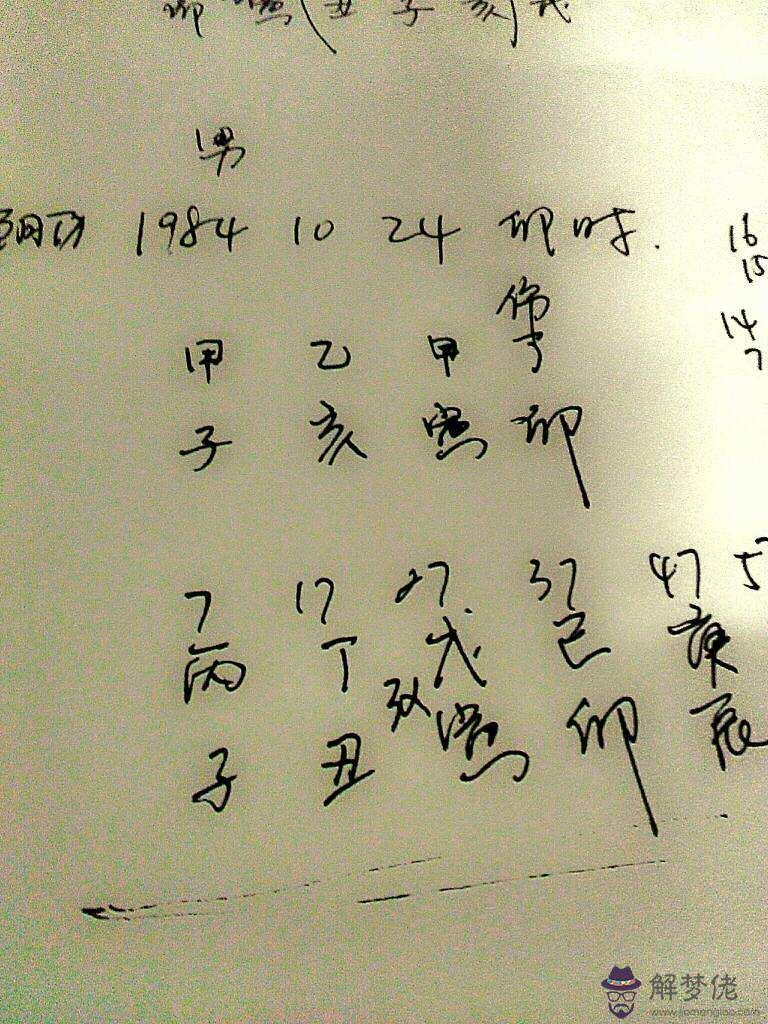 卯 寅 (丑 子 亥) 戌
男
1984 10 24 卯时. 16
15
14
伤
甲 乙 甲 丁 7
子 亥 寅 卯
7 17 27 37 47 5
丙 丁 戊 己 庚
子 丑 寅 卯 辰
解梦佬
www.jiemenglao.com